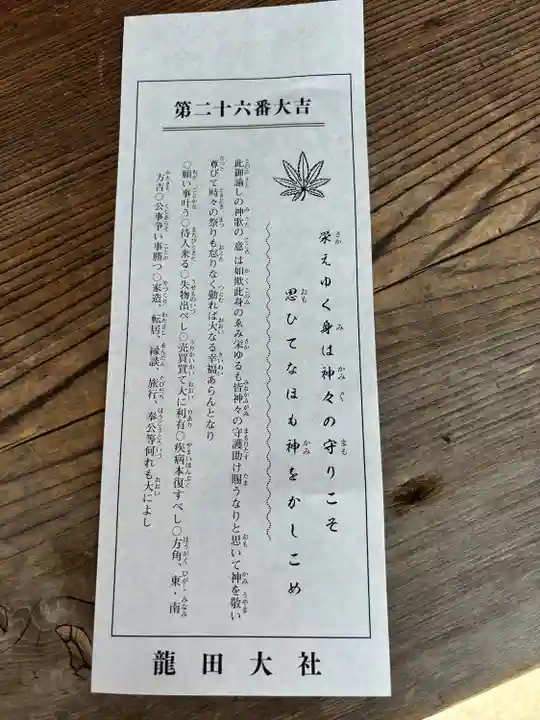 第二十六番大吉
栄えゆく身は神々の守りこそ
思ひてなほも神をかしこめ
此御諭しの神歌の意は如欺此身のゑみ栄ゆるも皆神々の守護助け賜うなりと思いて神を敬い
尊びて時々の祭りも怠りなく勤れば大なる幸福あらんとなり
○願い事叶う○待人来る○失物出べし○売買買て大に利有○疾病本復すべし○方角、東・南
方吉○公事争い事勝つ○家造、転居、縁談、旅行、奉公等何れも大によし
龍田大社